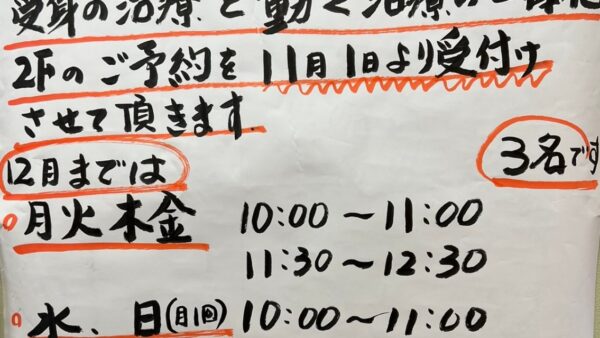 受身の治療と動く治療の一体化
2Fのご予約を11月1日より受付け
させて頂きます
12月までは 3名です
月火木金 10:00～11:00
11:30～12:30
水、日(月1回) 10:00～11:00